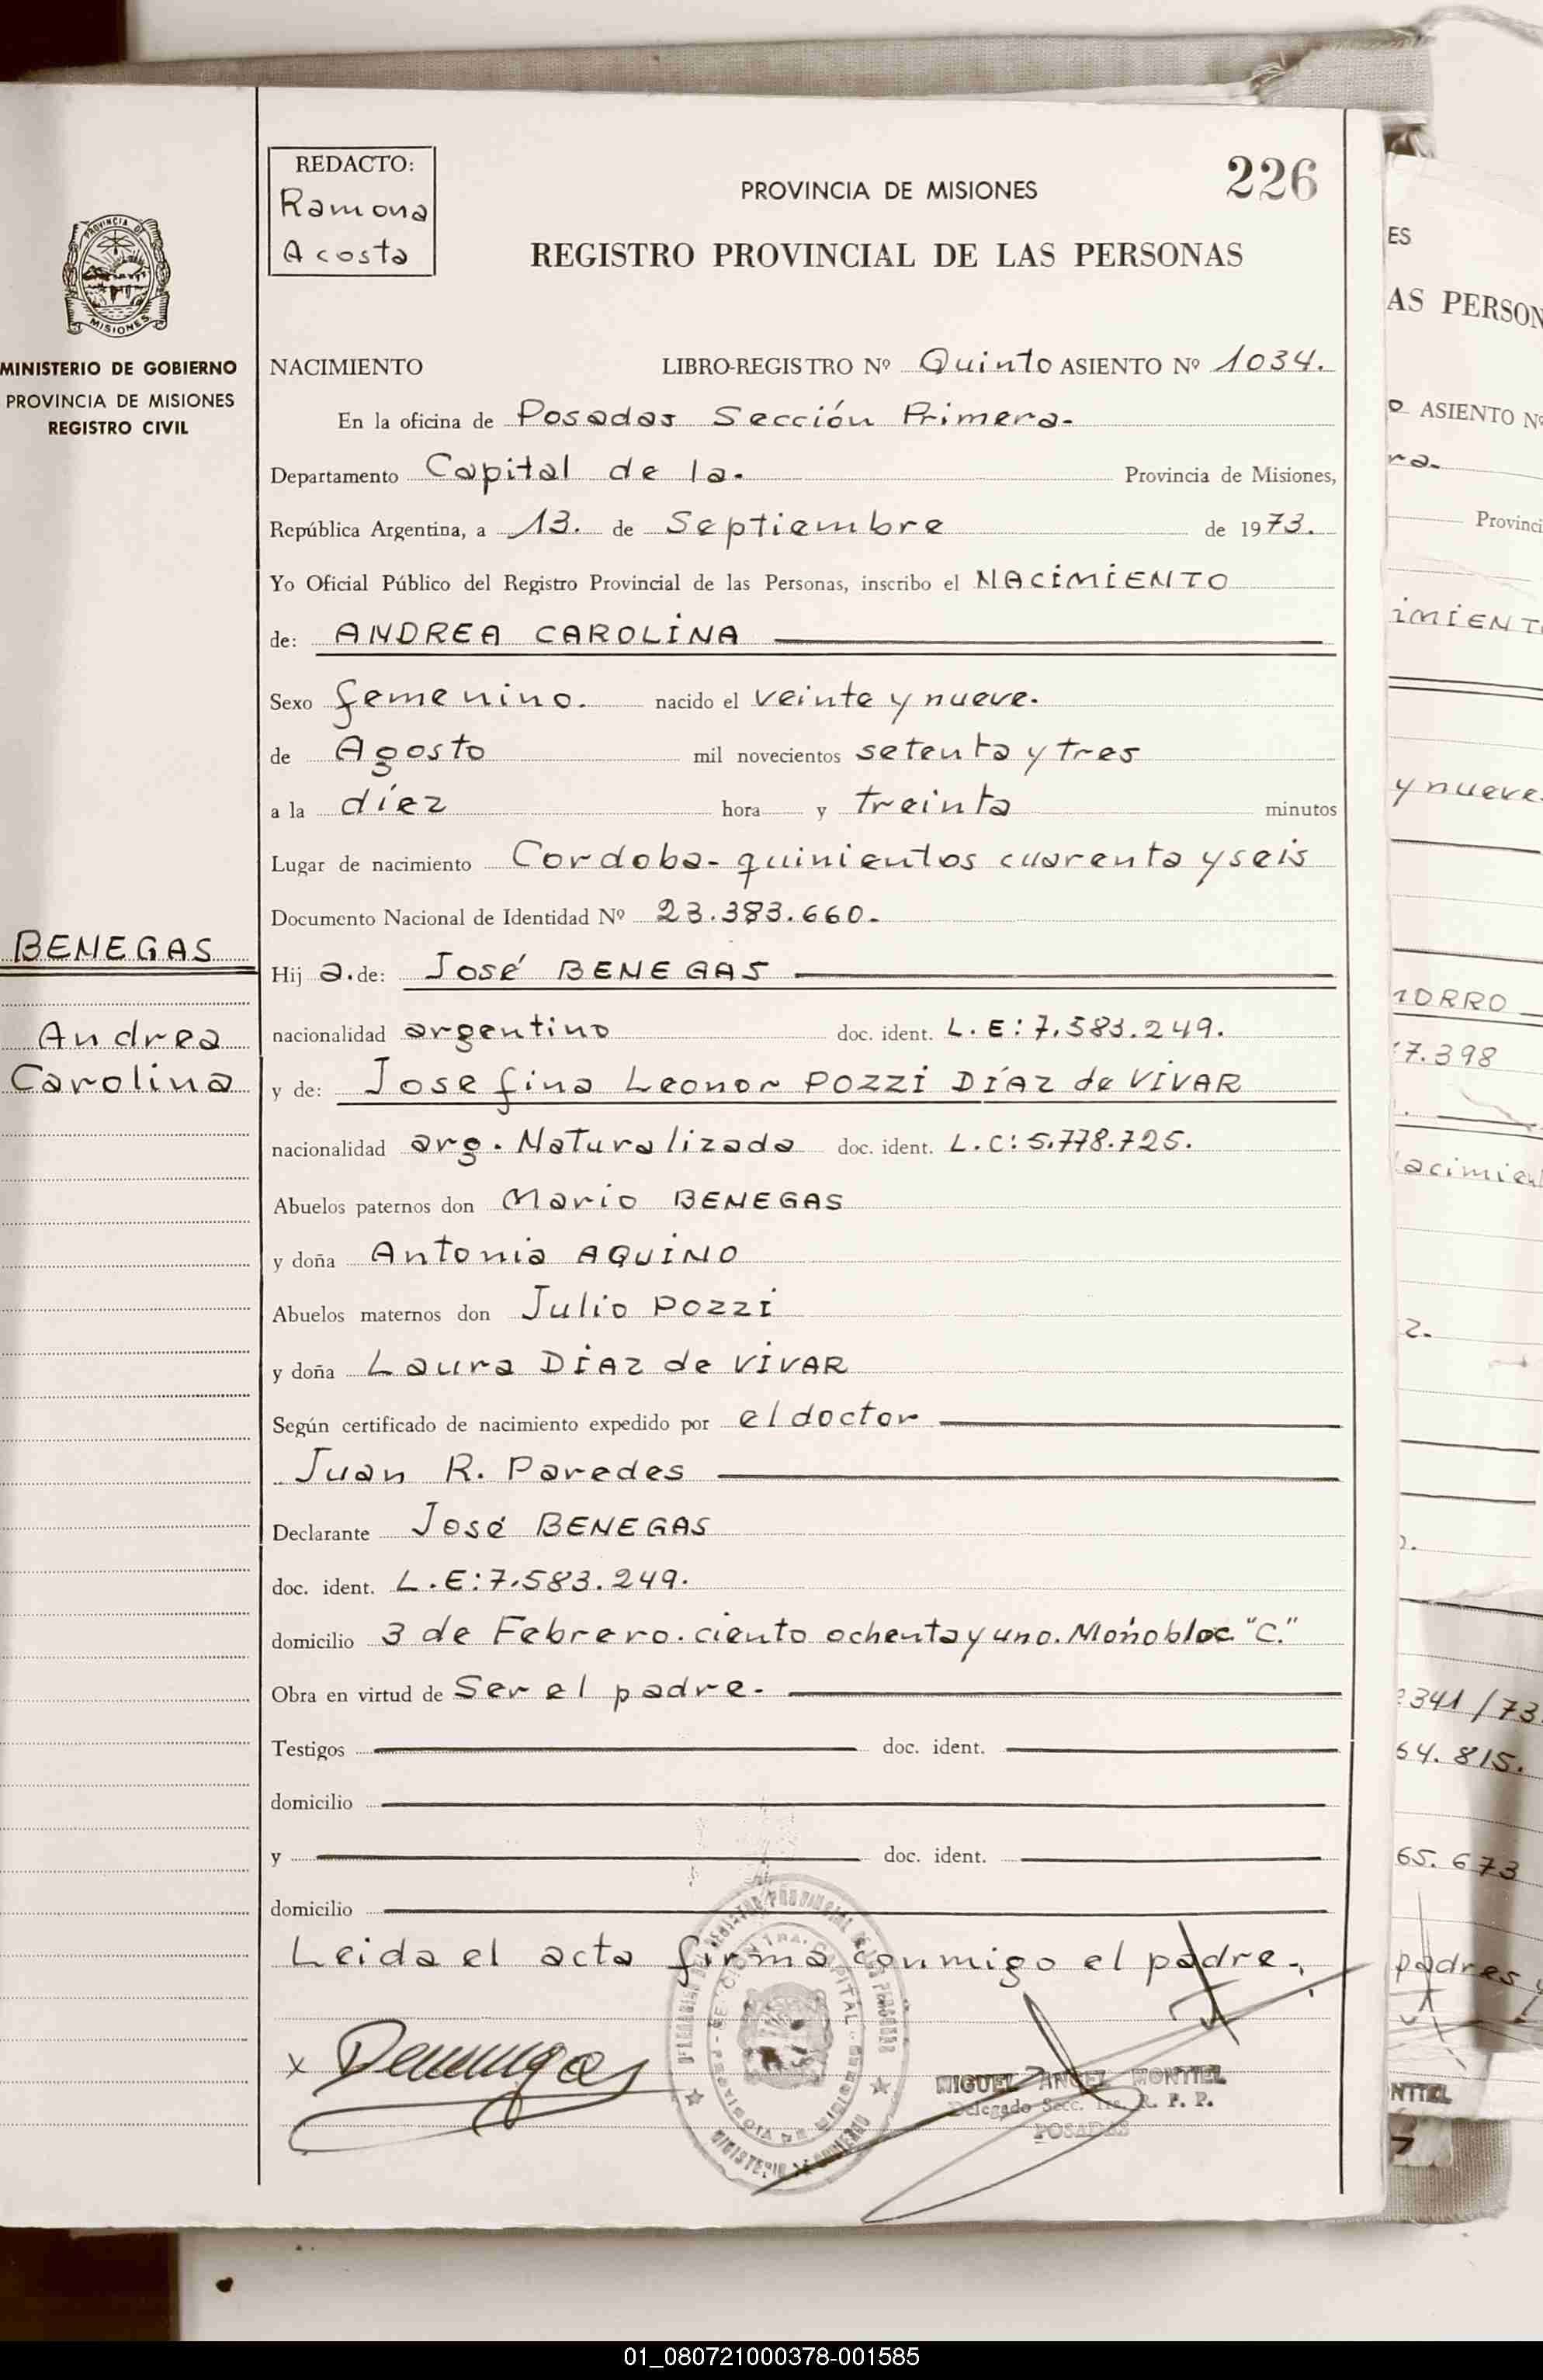 REDACTO:
Ramona
Acosta
PROVINCIA DE MISIONES
226
REGISTRO PROVINCIAL DE LAS PERSONAS
PROVINCIA DE
MISIONES
MINISTERIO DE GOBIERNO
PROVINCIA DE MISIONES
REGISTRO CIVIL
NACIMIENTO LIBRO-REGISTRO Nº Quinto ASIENTO Nº 1034.
En la oficina de Posadas Sección Primera-
Departamento Capital de la- Provincia de Misiones,
República Argentina, a 13. de Septiembre de 1973.
Yo Oficial Público del Registro Provincial de las Personas, inscribo el NACIMIENTO
de: ANDREA CAROLINA
Sexo femenino. nacido el veinte y nueve.
de Agosto mil novecientos setenta y tres
a la díez hora y treinta minutos
Lugar de nacimiento Cordoba- quinientos cuarenta y seis
Documento Nacional de Identidad Nº 23.383.660-
BENEGAS
Andrea
Carolina
Hij a. de: José BENEGAS
nacionalidad argentino doc. ident. L.E: 7.583.249.
y de: Josefina Leonor POZZI DÍAZ de VIVAR
nacionalidad arg. Naturalizada doc. ident. L.C: 5.778.725.
Abuelos paternos don Mario BENEGAS
y doña Antonia AQUINO
Abuelos maternos don Julio POZZI
y doña Laura DIAZ de VIVAR
Según certificado de nacimiento expedido por el doctor
Juan R. Paredes
Declarante José BENEGAS
doc. ident. L.E: 7.583.249.
domicilio 3 de Febrero. ciento ochenta y uno. Monobloc "C."
Obra en virtud de Ser el padre-
Testigos doc. ident.
domicilio
y doc. ident.
domicilio
Leida el acta firma conmigo el padre.
x
MIGUEL ANGEL MONTIEL
Delegado Secc. 1ra. R. P. P.
POSADAS
MINISTERIO DE GOBIERNO
ES
AS PERSON
o ASIENTO Nº
ra-
Provinci
IMIENTO
y nueve.
MORRO
7.398
acimien
z-
2341/73
64.815.
65.673
padres y
NTIEL
01_080721000378-001585